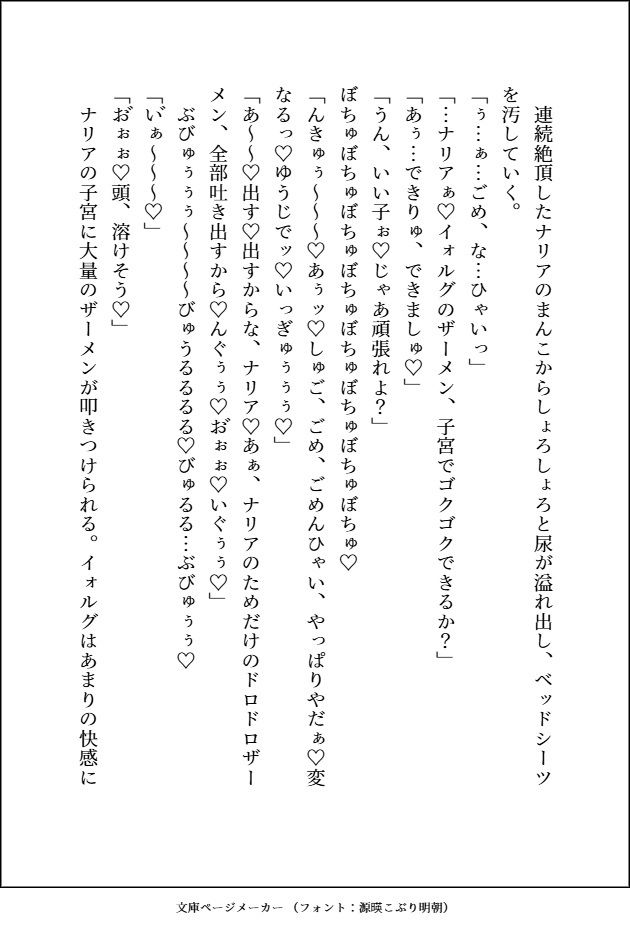 連続絶頂したナリアのまんこからしょろしょろと尿が溢れ出し、ベッドシーツ
を汚していく。
「ぅ…ぁ…ごめ、な…ひゃいっ」
「…ナリアぁ♡イォルグのザーメン、子宮でゴクゴクできるか？」
「あぅ…できりゅ、できましゅ♡」
「うん、いい子ぉ♡じゃあ頑張れよ？」
ぼちゅぼちゅぼちゅぼちゅぼちゅぼちゅぼちゅぼちゅ♡
「んきゅぅ〜〜〜♡あぅッ♡しゅご、ごめ、ごめんひゃい、やっぱりやだぁ♡変
なるっ♡ゆうじでッ♡いっぎゅぅぅぅ♡」
「あ〜〜♡出す♡出すからな、ナリア♡あぁ、ナリアのためだけのドロドロザー
メン、全部吐き出すから♡んぐぅぅ♡お゛ぉぉ♡いぐぅぅ♡」
ぶびゅぅぅぅ〜〜〜〜びゅうるるるる♡びゅるる…ぶびゅぅぅ♡
「い゛ぁ〜〜〜♡」
「お゛ぉぉ♡頭、溶けそう♡」
ナリアの子宮に大量のザーメンが叩きつけられる。イォルグはあまりの快感に
文庫ページメーカー （フォント：源暎こぶり明朝）